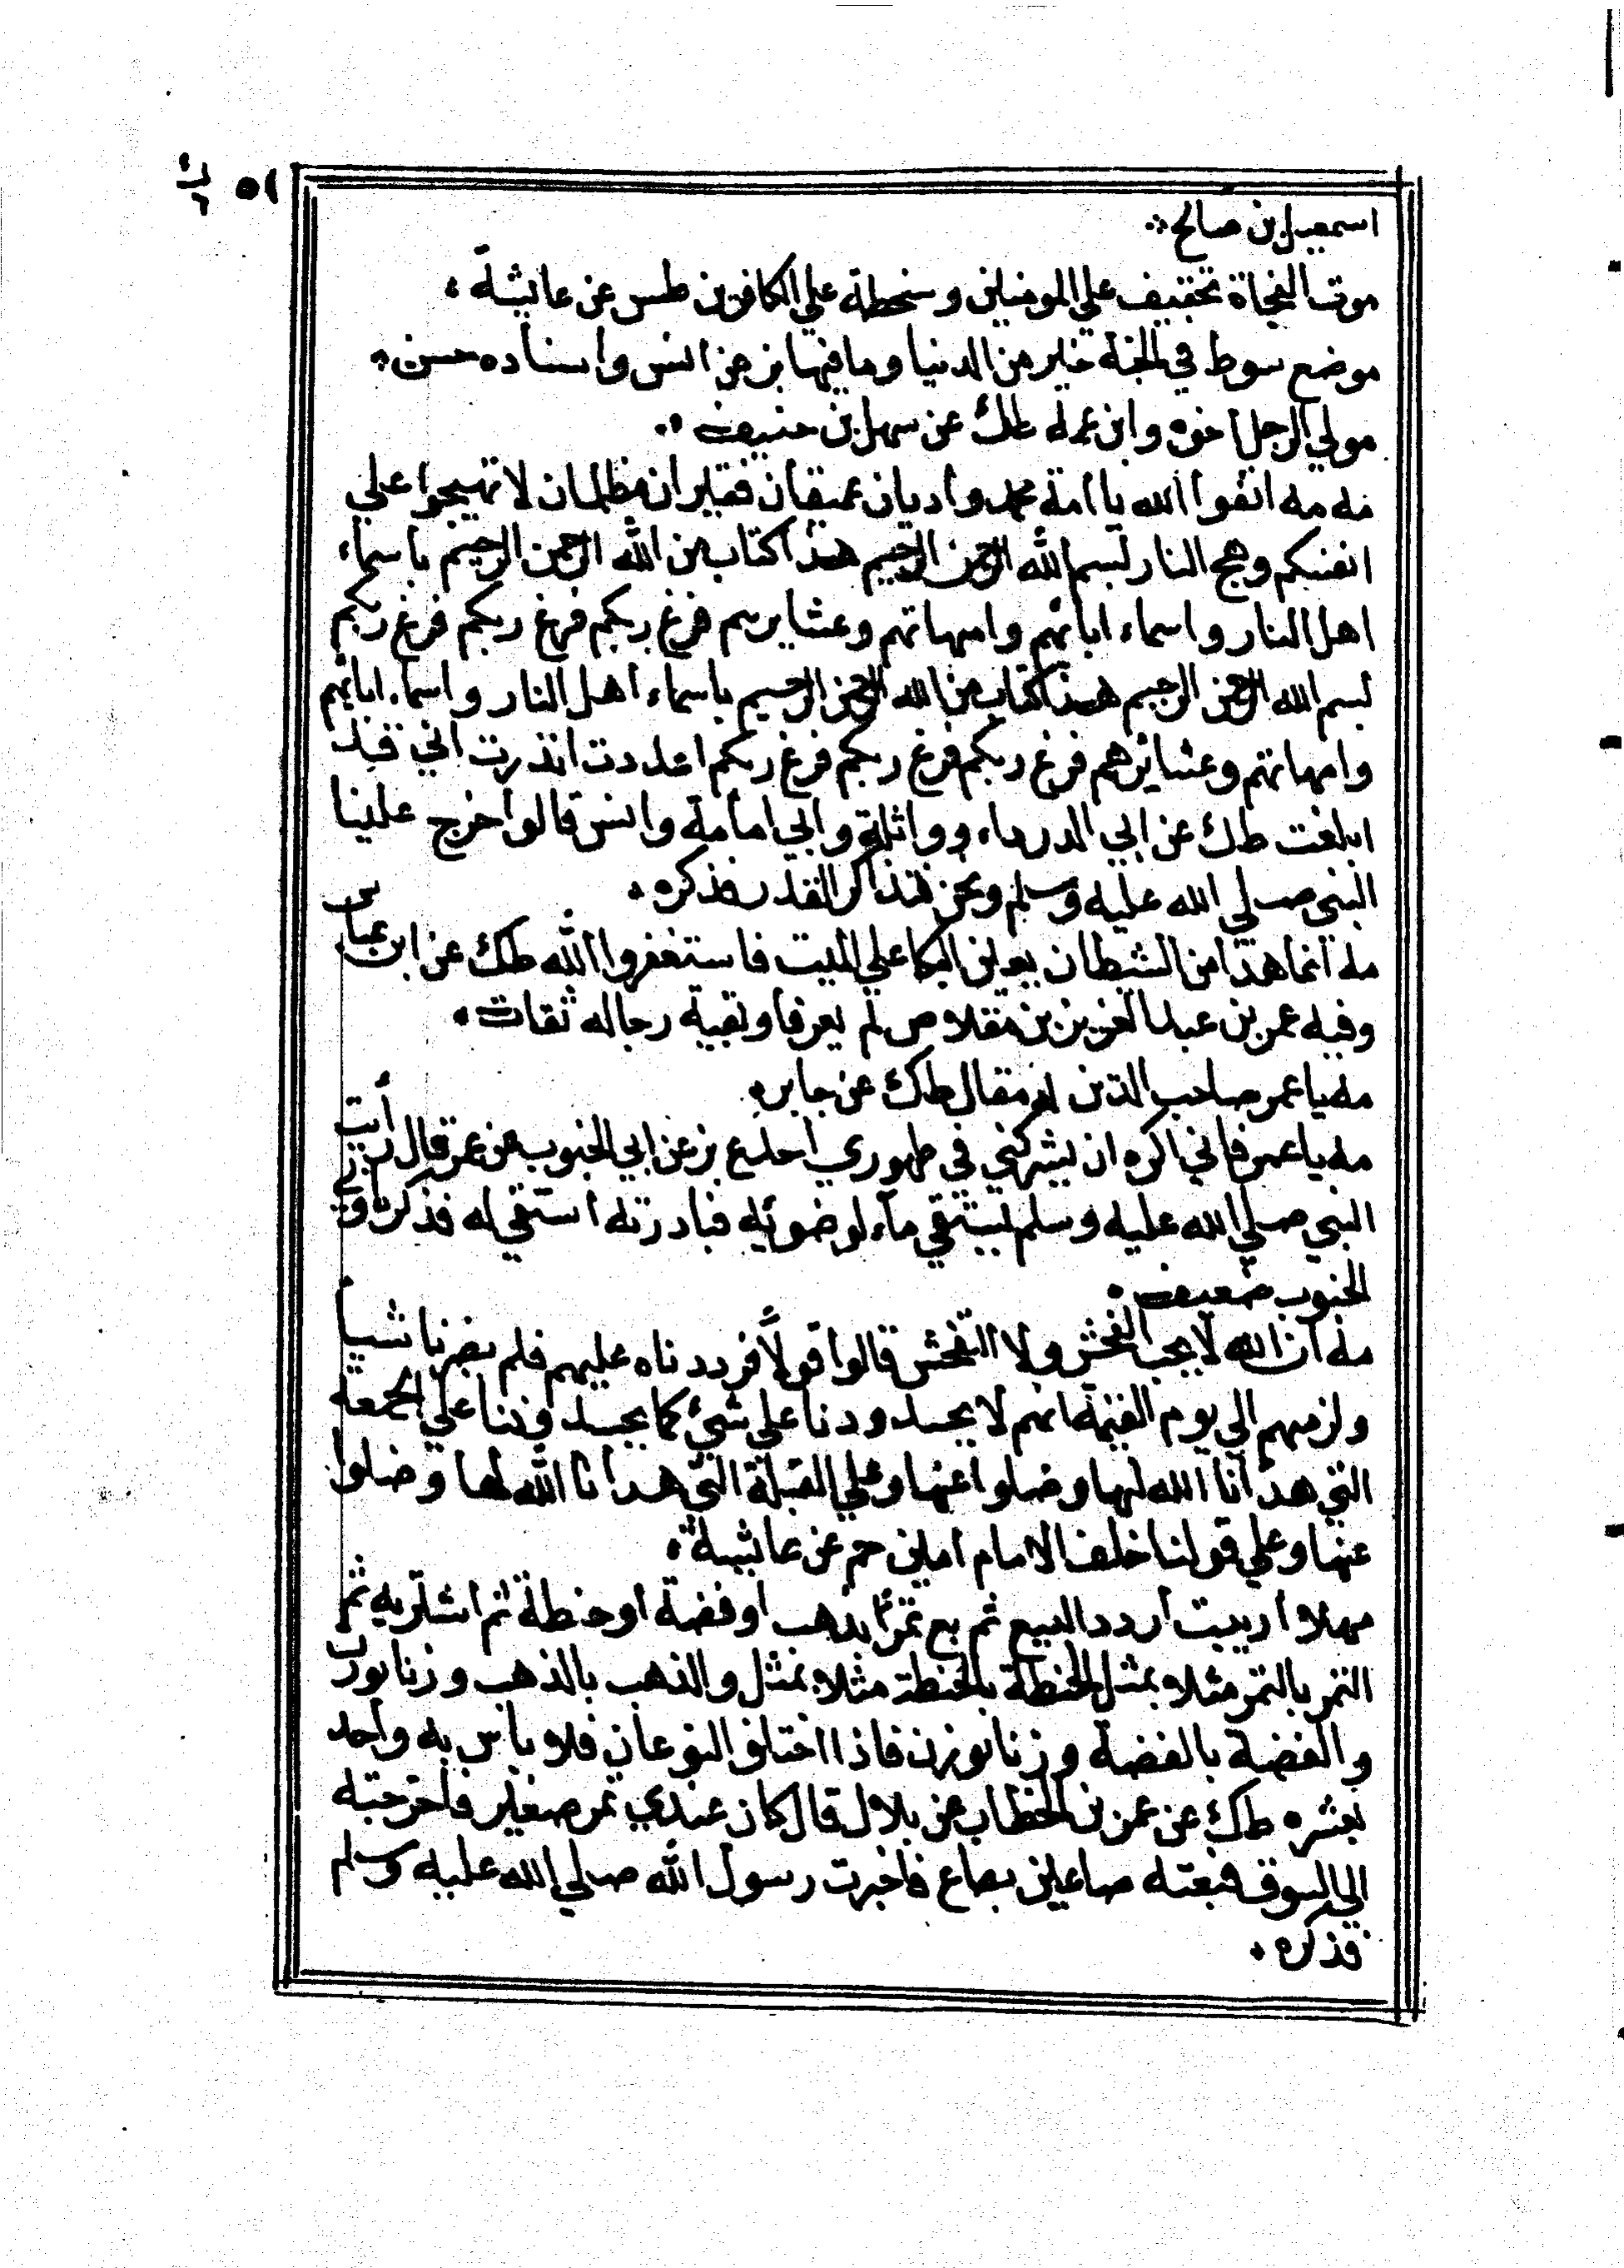 اسمعيل بن صالح
موت الفجاة تخفيف علي المومنين وسخطة علي الكافرين طس عن عائشة
موضع سوط في الجنة خير من الدنيا وما فيها بز عن انس واسناده حسن
مولي الرجل اخوه وابن عمه طك عن سهل بن حنيف
مه مه اتقوا الله يا امة محمد واديان عميقان قعيران مظلمان لا تهيجوا علي
انفسكم وهج النار بسم الله الرحمن الرحيم هذا كتاب من الله الرحمن الرحيم باسماء
اهل النار واسماء ابائهم وامهاتهم وعشايرهم فرغ ربكم فرغ ربكم فرغ ربكم
بسم الله الرحمن الرحيم هذا كتاب من الله الرحمن الرحيم باسماء اهل النار واسماء ابائهم
وامهاتهم وعشائرهم فرغ ربكم فرغ ربكم فرغ ربكم اعددت انذرت اني قد
ابلغت طك عن ابي الدرداء وواثلة وابي امامة وانس قالوا خرج علينا
النبي صلي الله عليه وسلم ونحن نتذاكر القدر فذكره
مه انما هذا من الشيطان يعني البكا علي الميت فاستغفروا الله طك عن ابن عباس
وفيه عمر بن عبد العزيز بن مقلاص لم يعرف وبقية رجاله ثقات
مه يا عمر صاحب الدين له مقال طك عن جابر
مه يا عمر فاني اكره ان يشركني في طهوري احد ع بز عن ابي الجنوب عن عمر قال رأيت
النبي صلي الله عليه وسلم يستقي ماء لوضوئه فبادرته استقي له فذكره وابي
الجنوب ضعيف
مه ان الله لا يحب الفحش ولا التفحش قالوا قولا فرددناه عليهم فلم يضرنا شيأ
ولزمهم الي يوم القيمة انهم لا يحسدونا علي شيئ كما يحسدونا علي الجمعة
التي هدانا الله لها وضلوا عنها وعلي القبلة التي هدانا الله لها وضلوا
عنها وعلي قولنا خلف الامام امين حم عن عائشة
مهلا اربيت اردد البيع ثم بع تمرا بذهب او فضة او حنطة ثم اشتر به ثم
التمر بالتمر مثلا بمثل الحنطة بالحنطة مثلا بمثل والذهب بالذهب وزنا بوزن
والفضة بالفضة وزنا بوزن فاذا اختلف النوعان فلا باس به واحد
بعشره طك عن عمر بن الخطاب عن بلال قال كان عندي تمر صغير فاخرجته
الي السوق فبعته صاعين بصاع فاخبرت رسول الله صلي الله عليه وسلم
فذكره